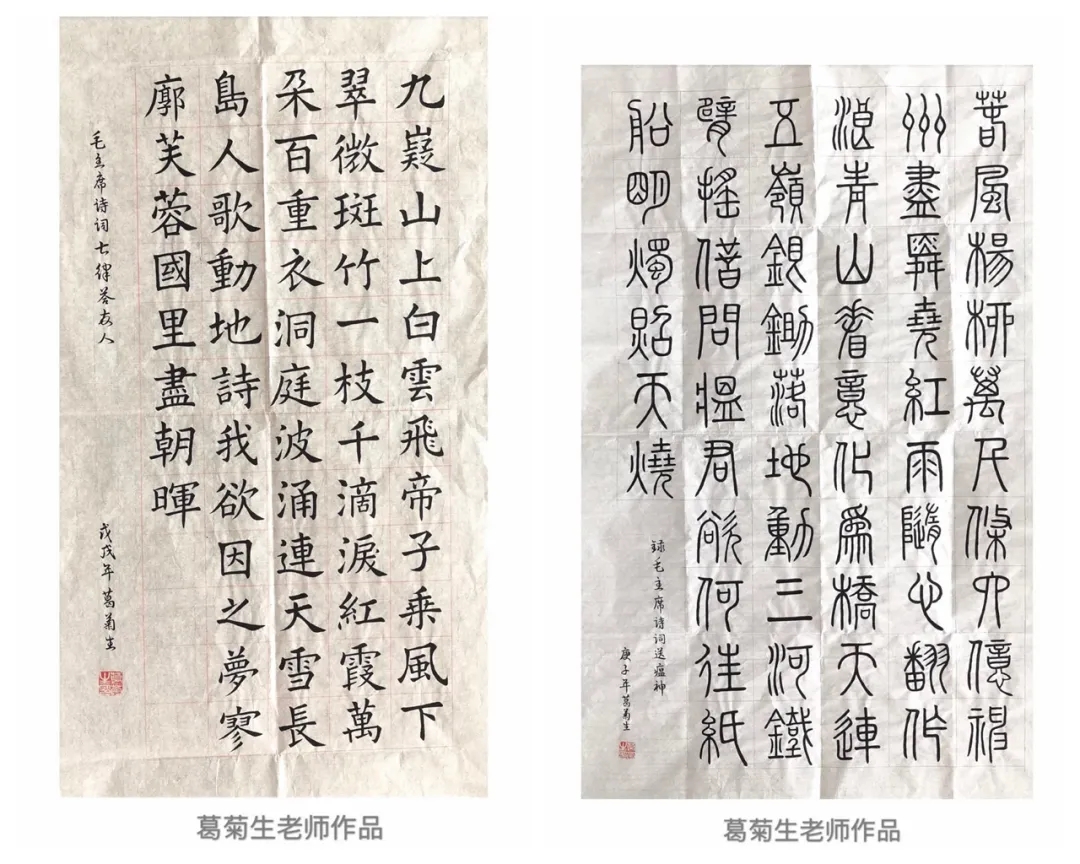 九嶷山上白雲飛帝子乘風下
翠微斑竹一枝千滴淚紅霞萬
朵百重衣洞庭波涌連天雪長
島人歌動地詩我欲因之夢寥
廓芙蓉國里盡朝暉
毛主席诗词七律答友人
戊戌年葛菊生
葛菊生老师作品
春風楊柳萬千條六億神
州盡舜堯紅雨隨心翻作
浪青山着意化為橋天連
五嶺銀鋤落地動三河鐵
臂搖借問瘟君欲何往紙
船明燭照天燒
録毛主席诗词送瘟神
庚子年葛菊生
葛菊生老师作品